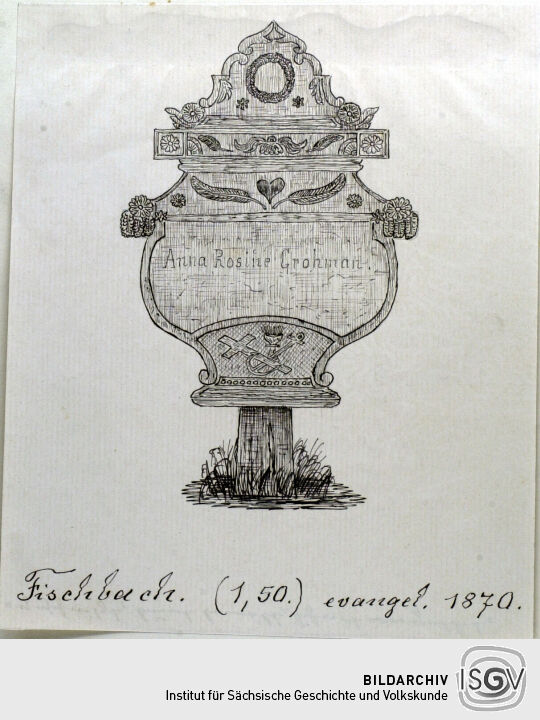 Anna Rosine Grohman.
Fischbach. (1,50.) evangel. 1870.
BILDARCHIV
Institut für Sächsische Geschichte und Volkskunde
ISGV